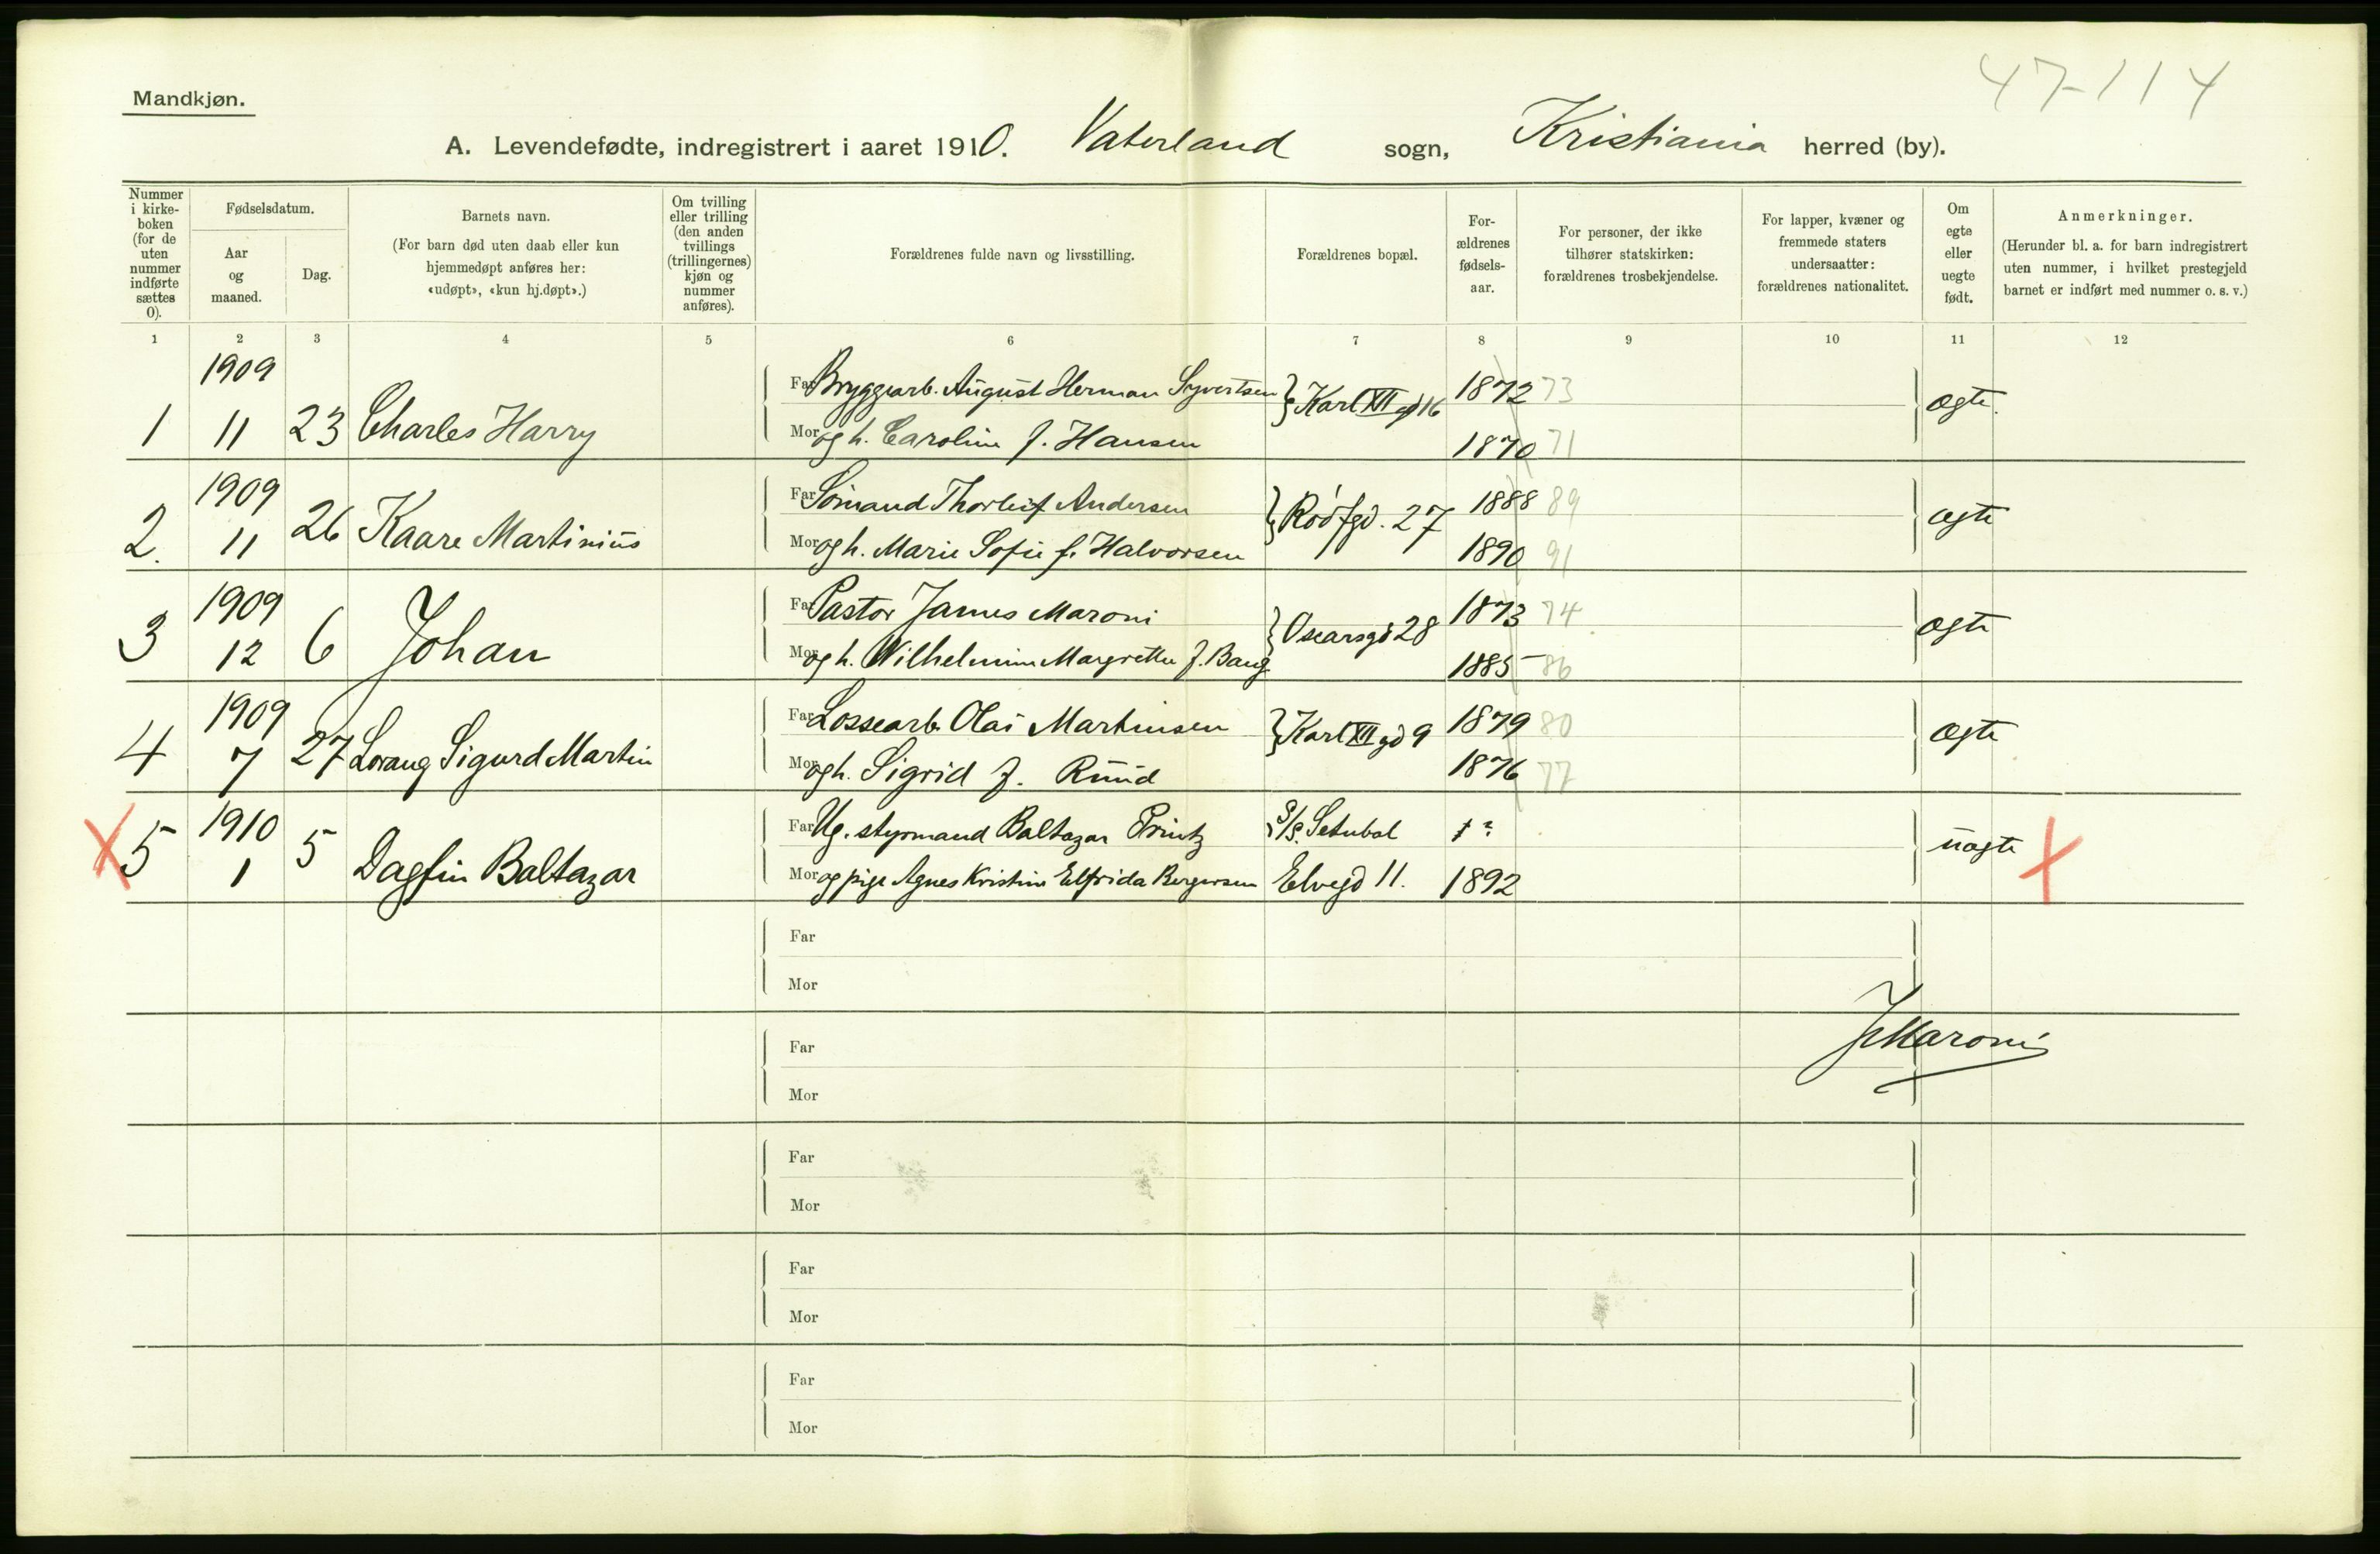 47-114
Mandkjøn.
A. Levendefødte, indregistrert i aaret 1910. Vaterland sogn, Kristiania herred (by).
Nummer i kirke-boken (for de uten nummer indførte sættes 0).
Fødselsdatum.
Aar og maaned.
Dag.
Barnets navn.
(For barn død uten daab eller kun hjemmedøpt anføres her: «udøpt», «kun hj.døpt».)
Om tvilling eller trilling (den anden tvillings (trillingernes) kjøn og nummer anføres).
Forældrenes fulde navn og livsstilling.
Forældrenes bopæl.
For-ældrenes fødsels-aar.
For personer, der ikke tilhører statskirken: forældrenes trosbekjendelse.
For lapper, kvæner og fremmede staters undersaatter: forældrenes nationalitet.
Om egte eller uegte født.
Anmerkninger.
(Herunder bl. a. for barn indregistrert uten nummer, i hvilket prestegjeld barnet er indført med nummer o. s. v.)
1 2 3 4 5 6 7 8 9 10 11 12
1909
Far Bryggearb. August Herman Syvertsen } Karl XII gd 16 1872 73
1 11 23 Charles Harry ægte.
Mor og h. Caroline f. Hansen 1870 71
1909
Far Sömand Thorleif Andersen } Rödfgd. 27 1888 89
2. 11 26 Kaare Martinius ægte
Mor og h. Marie Sofie f. Halvorsen 1890 91
1909
Far Pastor James Maroni } Oscarsgd 28 1873 74
3 12 6 Johan ægte
Mor og h. Wilhelmine Margrethe f. Bang 1885 86
1909
Far Lossearb. Olai Martinsen } Karl XII gd 9 1879 80
4 7 27 Lorang Sigurd Martin ægte
Mor og h. Sigrid f. Ruud 1876 77
1910
Far Ug. styrmand Baltazar Printz S/S. Setubal ?
X 5 1 5 Dagfin Baltazar uægte X
Mor og pige Agnes Kristine Elfrida Bergersen Elvegd 11. 1892
Far
Mor
JMaroni
Far
Mor
Far
Mor
Far
Mor
Far
Mor